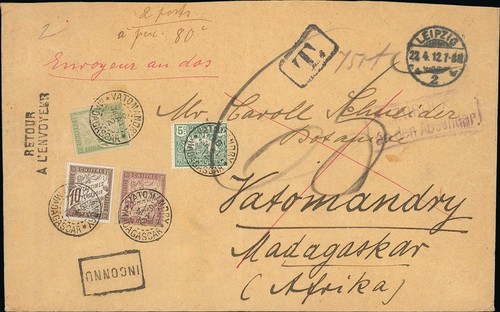 2 ports
à perc. 80c
Envoyeur au dos
T
LEIPZIG
22.4.12.7-8N
2
Mr. Caroll Schneider
Botaniste
an den Absender
RETOUR
A L'ENVOYEUR
VATOMANDRY
MADAGASCAR
5c
CHIFFRE
10
VATOMANDRY
MADAGASCAR
Vatomandry
Madagaskar
(Afrika)
INCONNU